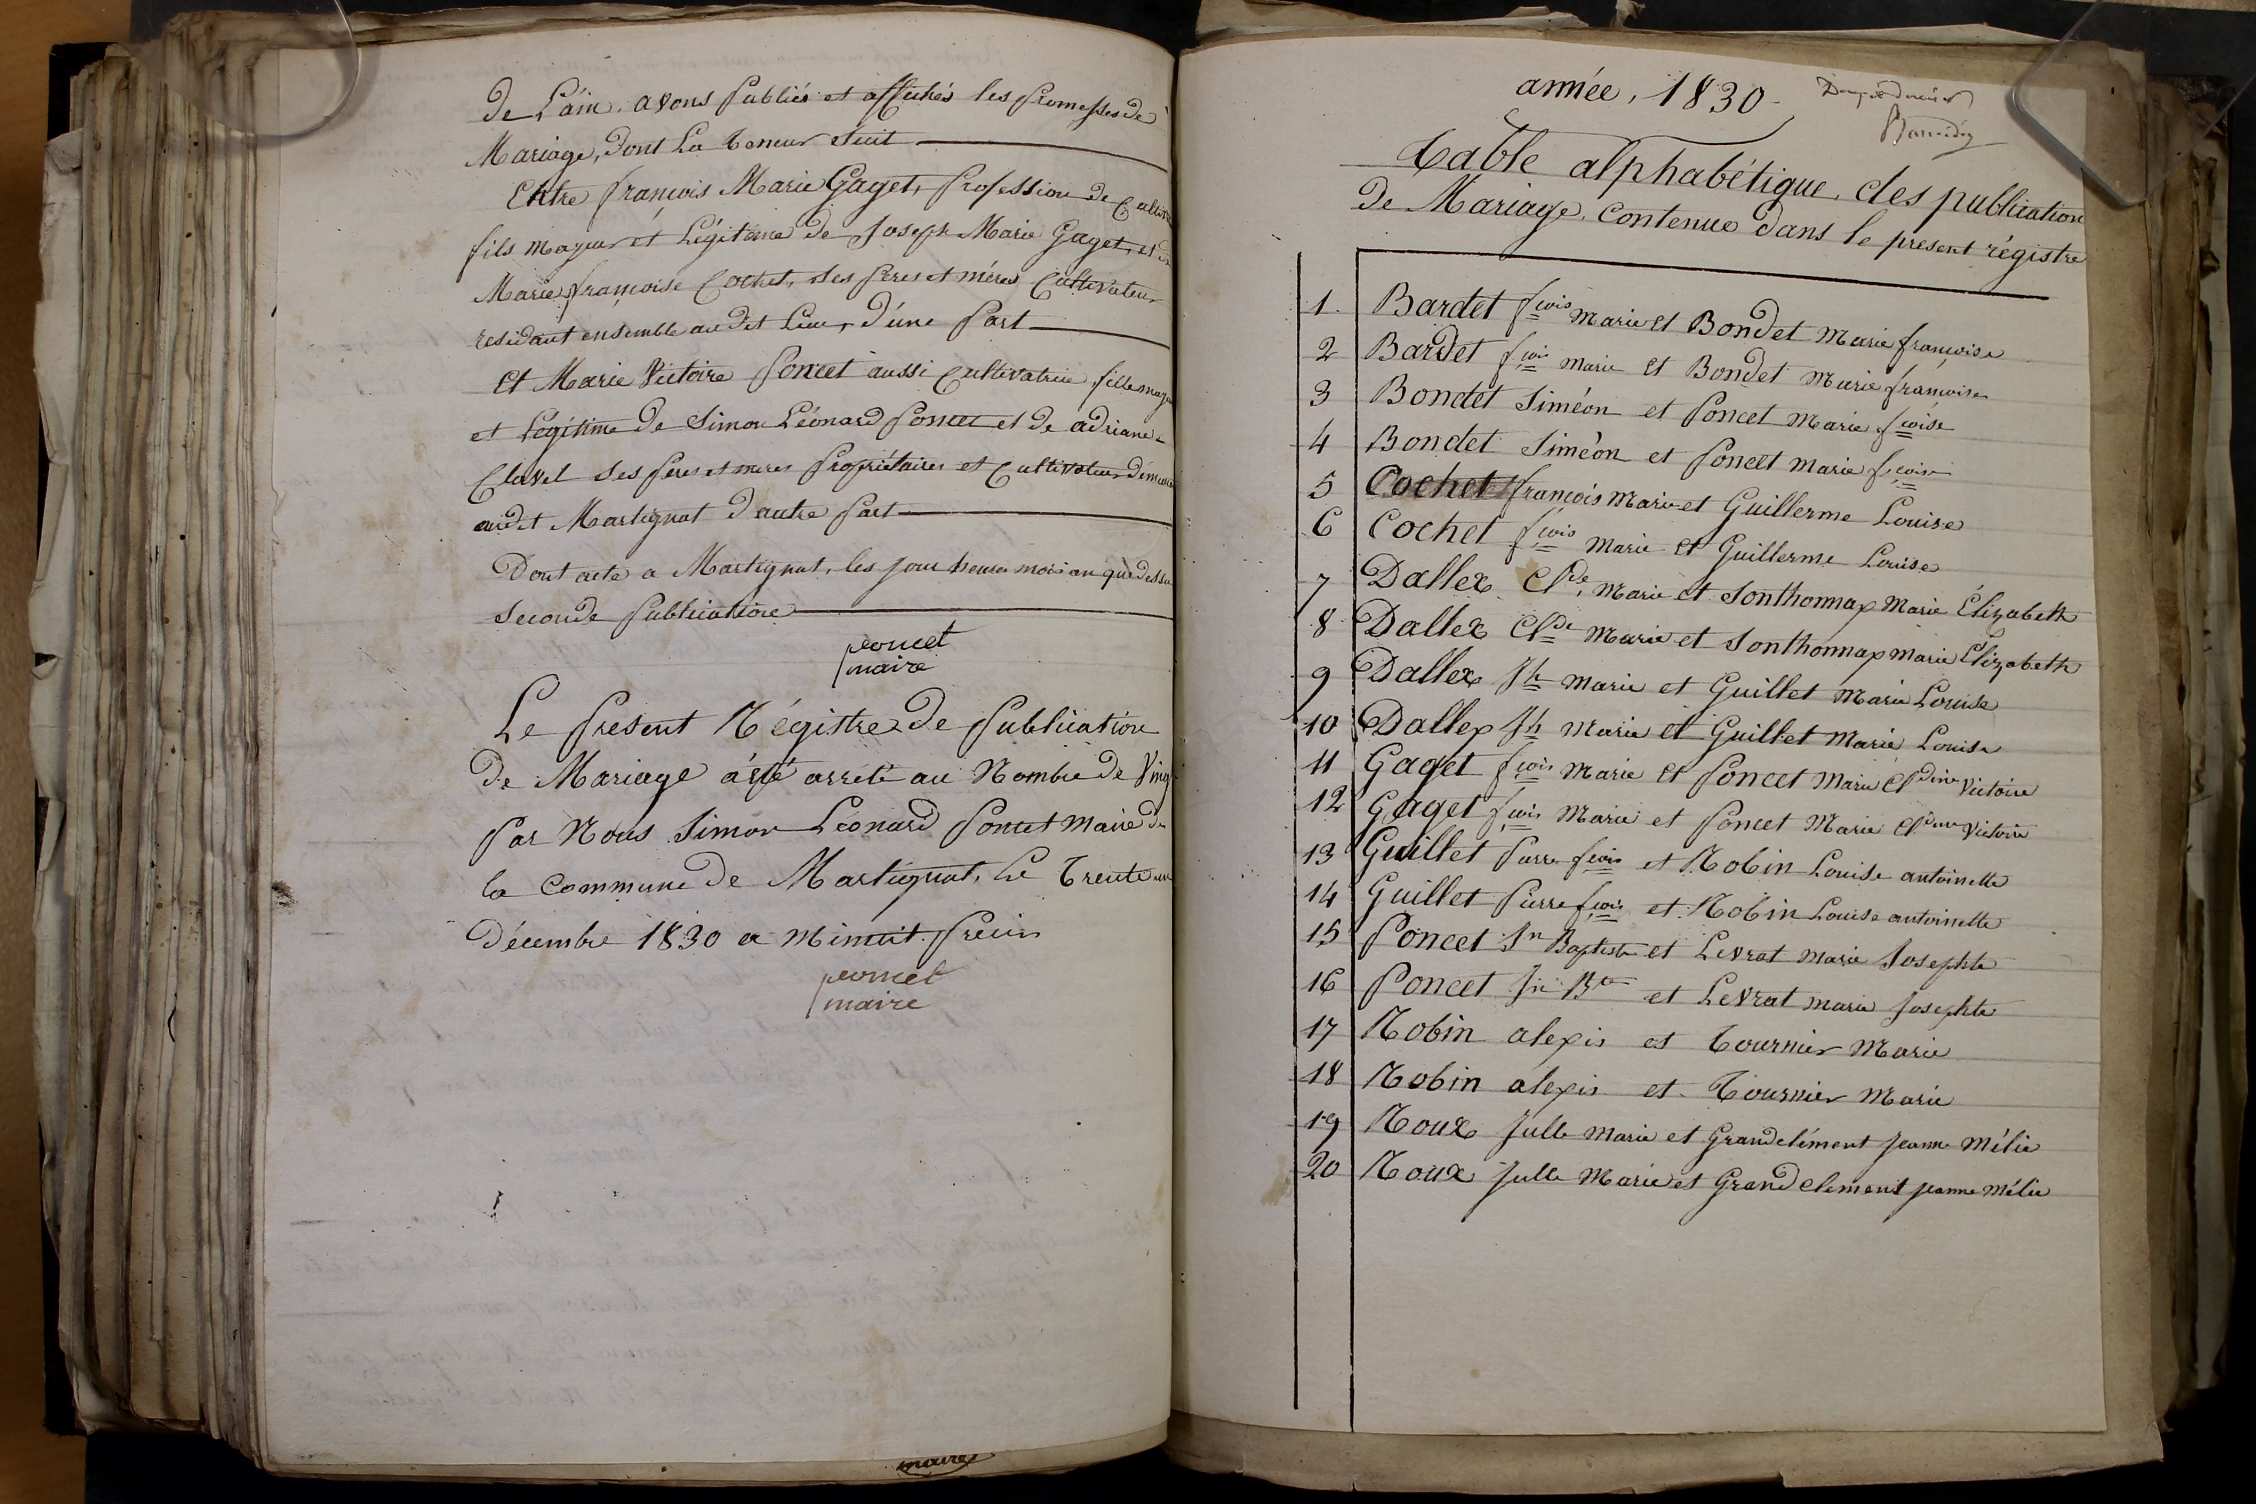 de L'ain. avons Publiés et affichés les Promesses de
Mariage, dont La teneur Suit
Entre françois Marie Gaget, Profession de Cultiv
fils Majeur et Légitime de Joseph Marie Gaget, et de
Marie françoise Cochet, Ses Peres et méres Cultivateur
residant ensemble au dit Lieu, d'une Part
Et Marie Victoire Poncet aussi Cultivatrice, fille maj
et Légitime de Simon Léonard Poncet et de adriane
Clavel Ses Peres et meres Propriétaires et Cultivateur
audit Martignat d'autre Part
Dont acte a Martignat, les jour heure mois an que dessu
Seconde Publication
poncet
maire
Le Present Régistre de Publication
de Mariage a été arrété au Nombre de Ving
Par Nous Simon Léonard Poncet Maire de
la Commune de Martignat, Le Trente un
décembre 1830 a Minuit Précis
poncet
maire
maire
année, 1830
Table alphabétique, des publication
de Mariage, Contenue dans le present régistre
1. Bardet fçois Marie et Bondet Marie françoise
2 Bardet fçois Marie et Bondet Marie françoise
3 Bondet Siméon et Poncet Marie fçoise
4 Bondet Siméon et Poncet Marie fçoise
5 Cochet françois Marie et Guillerme Louise
6 Cochet fçois Marie et Guillerme Louise
7 Dallex Clde Marie et Sonthonnax Marie Élizabeth
8 Dallex Clde Marie et Sonthonnax Marie Élizabeth
9 Dallex Jh Marie et Guillet Marie Louise
10 Dallex Jh Marie et Guillet Marie Louise
11 Gaget fçois Marie et Poncet Marie Cldine Victoire
12 Gaget fçois Marie et Poncet Marie Cldine Victoire
13 Guillet Pierre fçois et Robin Louise antoinette
14 Guillet Pierre fçois et Robin Louise antoinette
15 Poncet Jn Baptiste et Levrat Marie Josephte
16 Poncet Jn Bte et Levrat Marie Josephte
17 Robin alexis et Tournier Marie
18 Robin alexis et Tournier Marie
19 Roux Julle Marie et Grandclément Jeanne Mélie
20 Roux Julle Marie et Grand Clement Jeanne Mélie